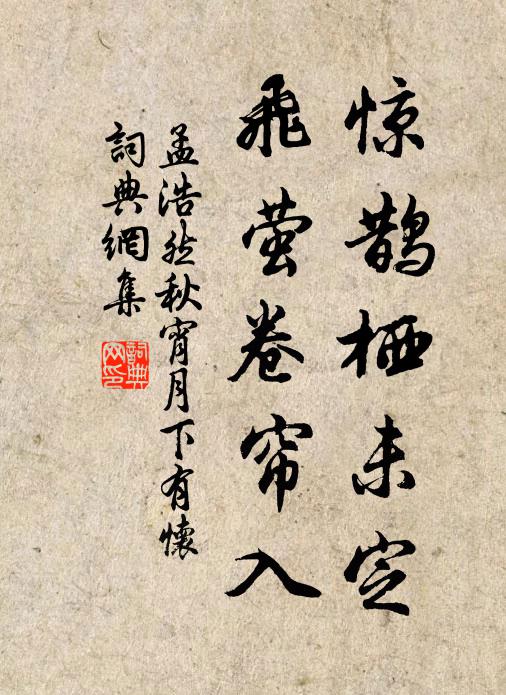 惊鹊栖未定
飞萤卷帘入
孟浩然秋宵月下有懷
詞典網集
詞典网印